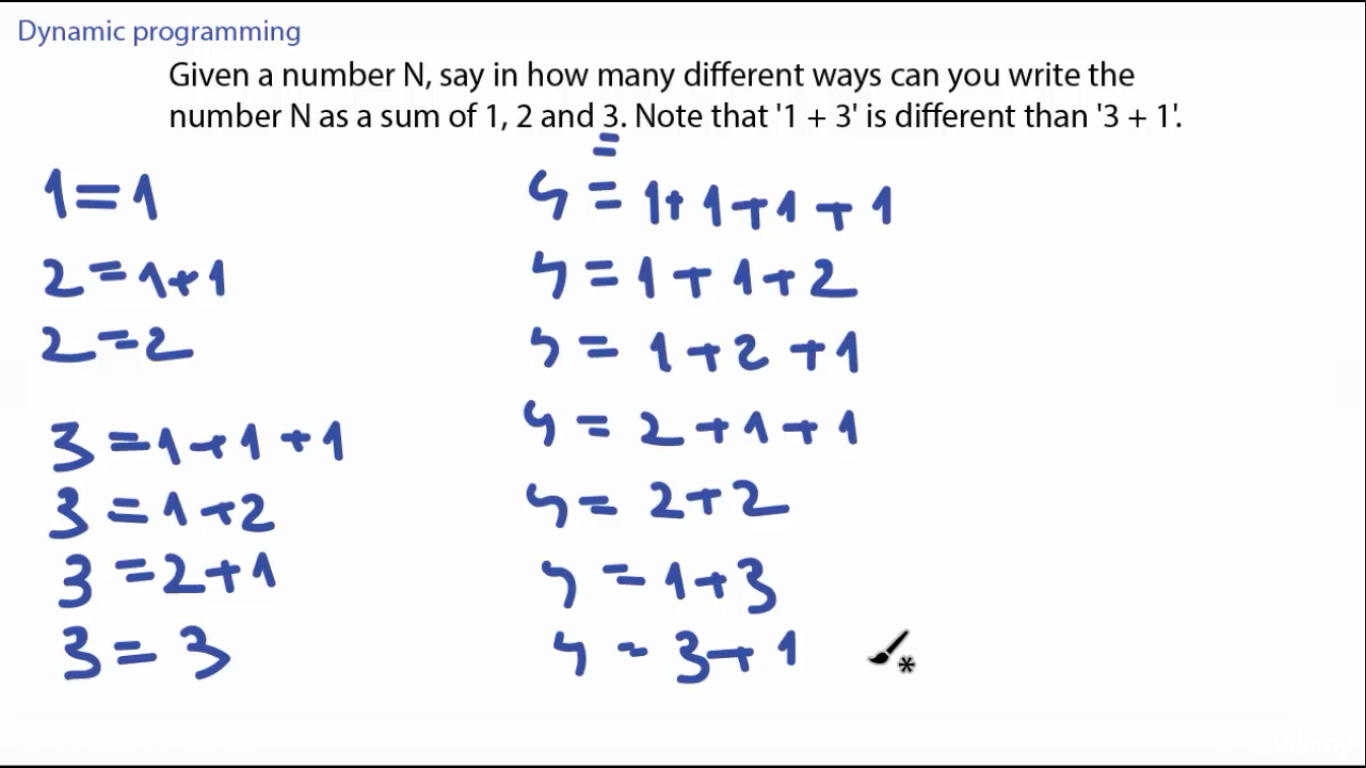 Dynamic programming
Given a number N, say in how many different ways can you write the
number N as a sum of 1, 2 and 3. Note that '1 + 3' is different than '3 + 1'.
1=1
2=1+1
2=2
3=1+1+1
3=1+2
3=2+1
3=3
4=1+1+1+1
4=1+1+2
4=1+2+1
4=2+1+1
4=2+2
4=1+3
4=3+1
udemy